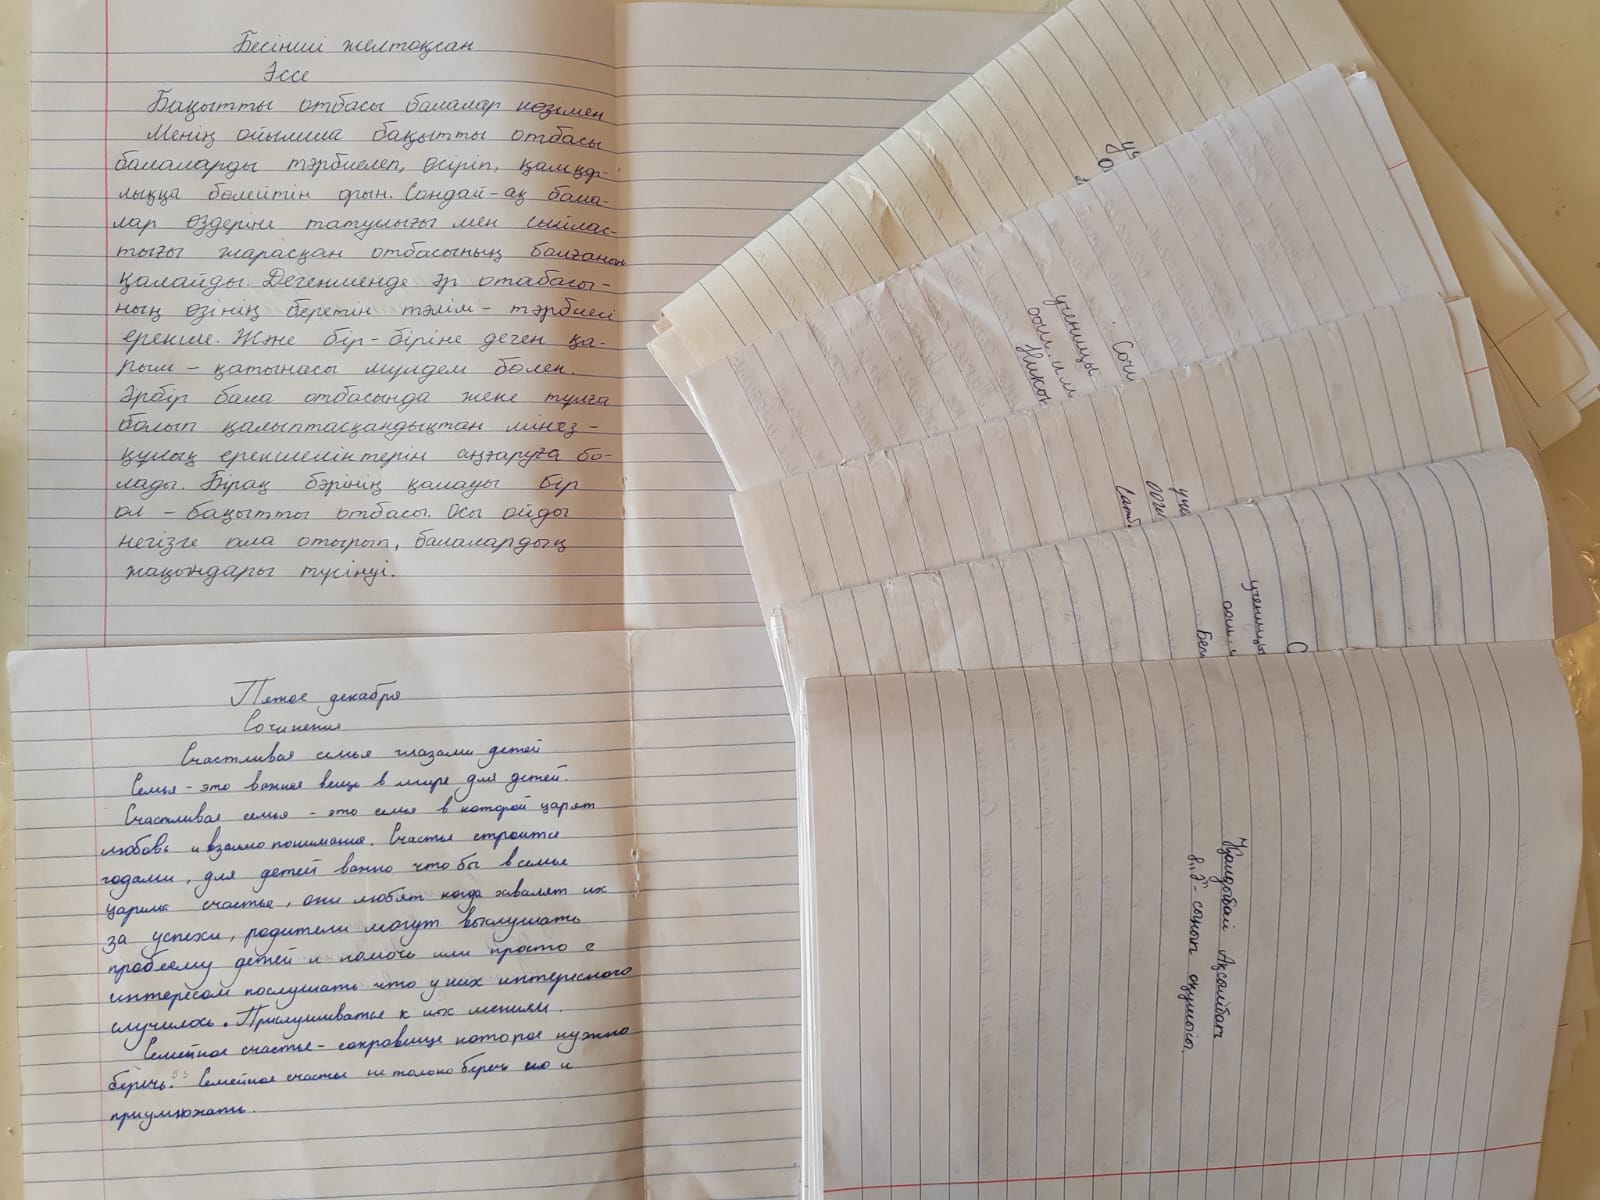 Бесінші желтоқсан
Эссе
Бақытты отбасы балалар көзімен
Менің ойымша бақытты отбасы
балаларды тәрбиелеп, өсіріп, қамқор-
лыққа бөлейтін орын. Сондай-ақ бала-
лар өздеріне татулығы мен сыйлас-
тығы жарасқан отбасының болғанын
қалайды. Дегенменде әр отабасы-
ның өзінің беретін тәлім-тәрбиесі
ерекше. Және бір-біріне деген қа-
рым-қатынасы мүлдем бөлек.
Әрбір бала отбасында жеке тұлға
болып қалыптасқандықтан мінез-
құлық ерекшеліктерін аңғаруға бо-
лады. Бірақ бәрінің қалауы бір
ол - бақытты отбасы. Осы ойды
негізге ала отырып, балалардың
жақындары түсінуі.
Пятое декабря
Сочинения
Счастливая семья глазами детей
Семья - это важная вещь в мире для детей.
Счастливая семья - это семья в которой царят
любовь и взаимопонимание. Счастье строится
годами, для детей важно что бы в семье
царила счастье, они любят когда хвалят их
за успехи, родители могут выслушать
проблему детей и помочь или просто с
интересом послушать что у них интересного
случилось. Прислушиваться к их мениям.
Семейное счастье - сокровище которое нужно
беречь. Семейное счастье не только беречь но и
приумножать.
уч
Сочи
ученицы
Никон
уче
Сатб
С
ученицы
Бек
Қалдыбай Ақсәулет
8 "Ә" - сынып оқушысы.